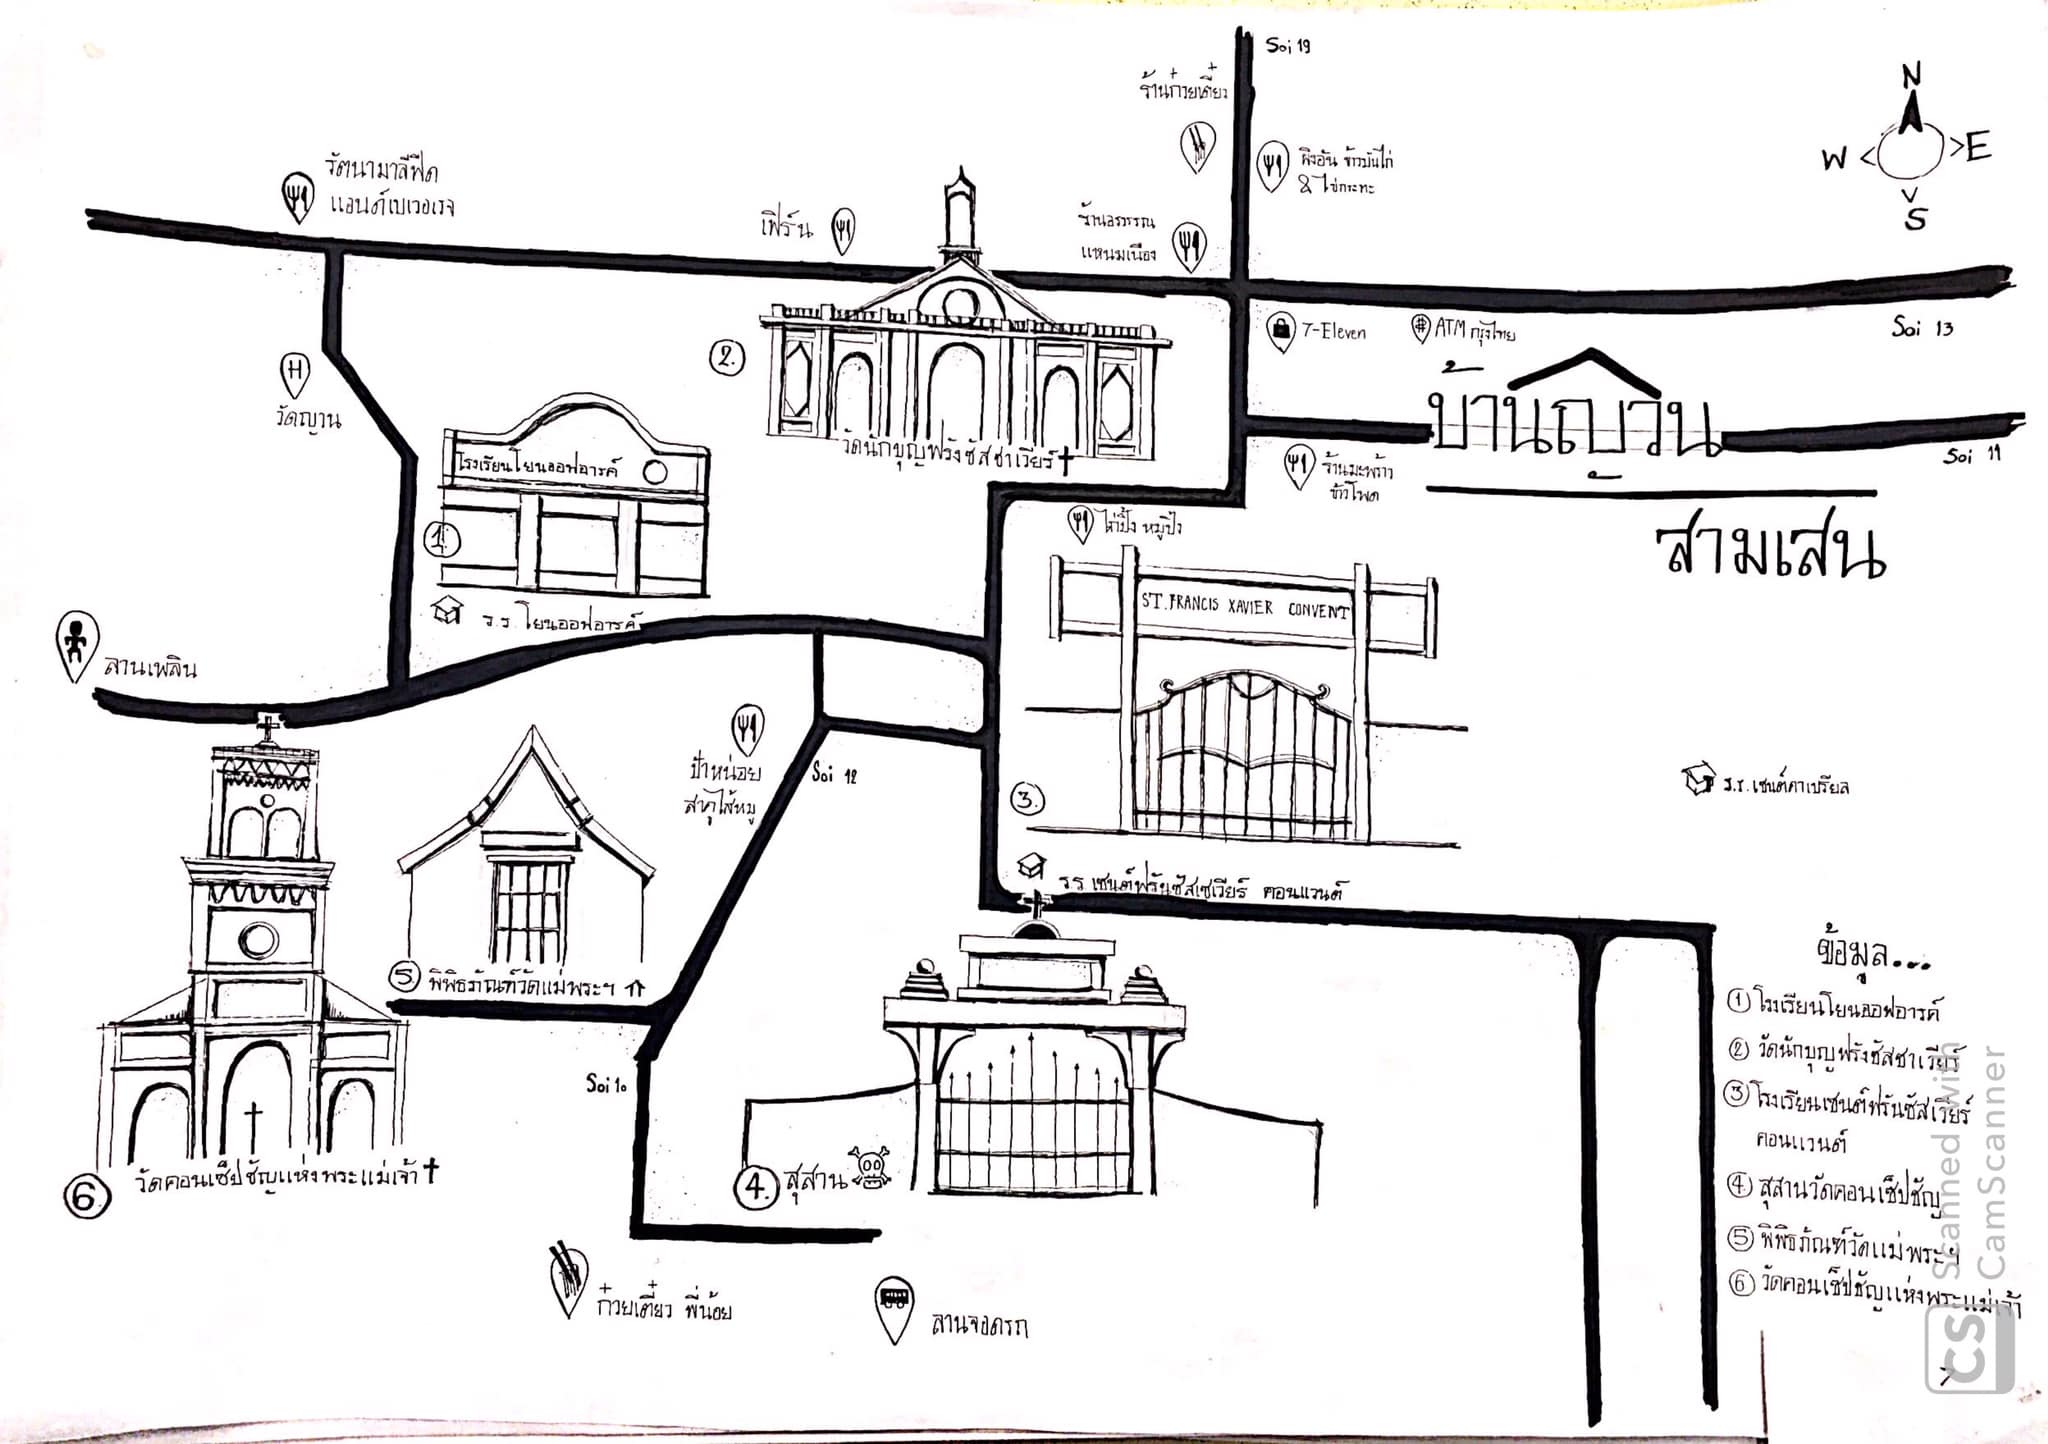 Soi 19
ร้านก๋วยเตี๋ยว
N
W
E
S
รัตนามาลีฟู๊ด
แอนด์เบเวอเรจ
เฟิร์น
ร้านอรวรรณ
แหนมเนือง
ข้าวมันไก่
& ไข่กระทะ
7-Eleven
ATM กรุงไทย
Soi 13
บ้านญวน
2
สามเสน
Soi 11
ร้านมะพร้าว
ข้าวโพด
H
วัดญวน
2.
วัดนักบุญฟรังซิสซาเวียร์
โรงเรียนโยนออฟอาร์ค
1.
ร.ร.โยนออฟอาร์ค
ไก่ปิ้ง หมูปิ้ง
ST. FRANCIS XAVIER CONVENT
3.
รร เซนต์ฟรังซีสเซเวียร์ คอนแวนต์
ร.ร.เซนต์คาเบรียล
ลานเพลิน
ป้าหน่อย
สาคูไส้หมู
Soi 12
5
พิพิธภัณฑ์วัดแม่พระฯ
Soi 10
6.
วัดคอนเซ็ปชัญแห่งพระแม่เจ้า
4.
สุสาน
ก๋วยเตี๋ยว พี่น้อย
ลานจอดรถ
ข้อมูล...
1 โรงเรียนโยนออฟอารค์
2 วัดนักบุญฟรังซัสซาเวียร์
3 โรงเรียนเซนต์ฟรันซัสเวียร์
คอนแวนต์
4 สุสานวัดคอนเซ็ปชัญ
5 พิพิธภัณฑ์วัดแม่พระฯ
6 วัดคอนเซ็ปชัญแห่งพระแม่เจ้า
7
Scanned with
CamScanner
CS